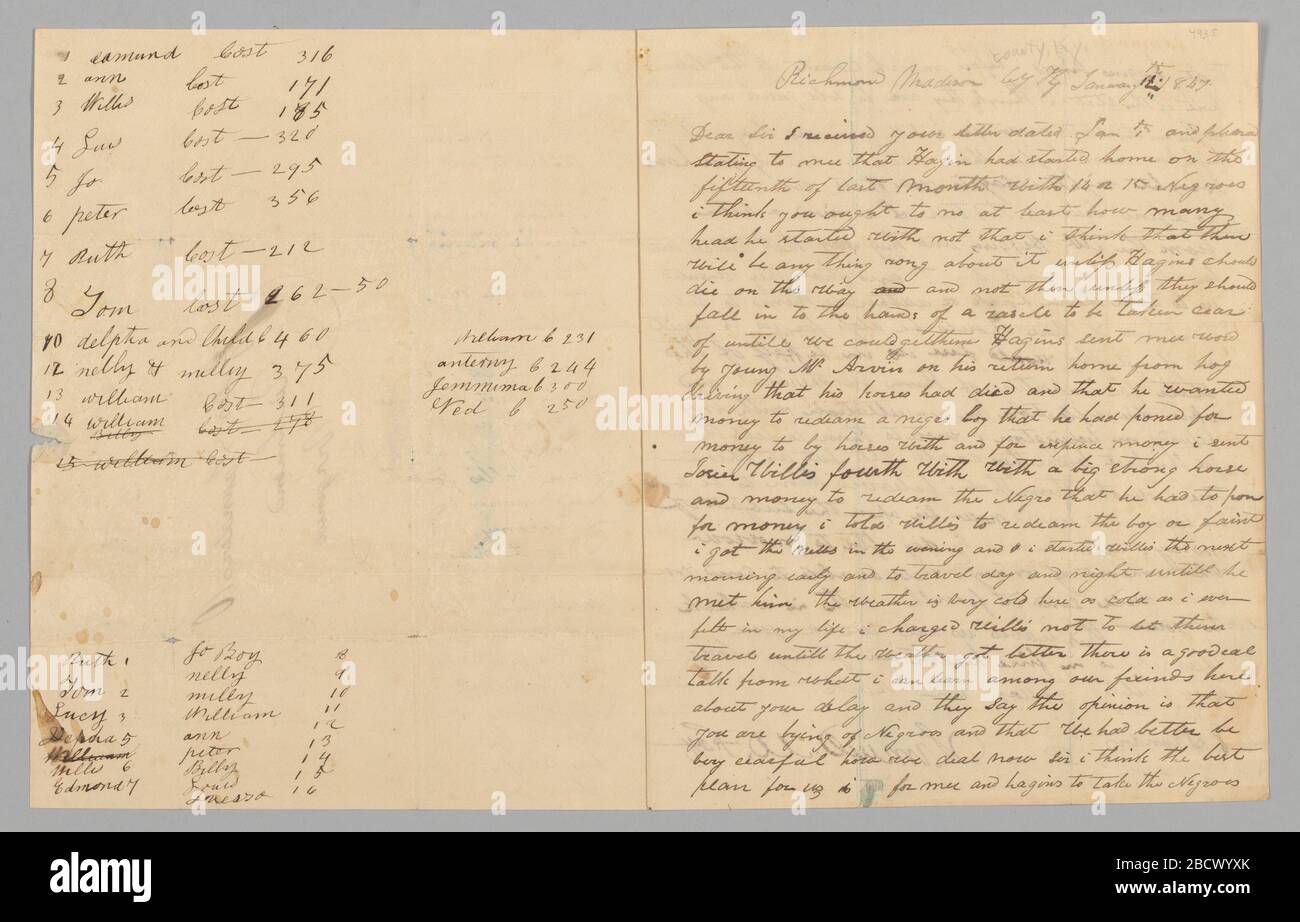 1 edmund Cost 316
2 ann Cost 171
3 Willis Cost 185
4 Luw Cost — 320
5 Jo. Cost — 295
6 peter Cost 356
7 Ruth Cost — 212
8 Tom Cost 262-50
10 delpha and Child C 460
12 nelly & milley 375
13 william Cost — 311
14 william
billy Cost — 178
15 william Cost —
William C 231
anterny C 244
Jemmima C 300
Ned C 250
Ruth 1
Tom 2
Lucy 3
Delpha 5
William
Willis 6
Edmond 7
Jo Boy 8
nelly 9
milley 10
William 11
ann 12
peter 13
Billy 14
15
16
4935
Richmon Madison Cty Ky January 1847
Dear Sir I recieved your letter dated Jan and
stating to mee that Hagin had started home on the
fifteenth of last month with 14 or 15 Negroes
i think you ought to no at least how many
head he started with not that i think that there
will be any thing rong about it untill Hagins should
die on the way and and not then unless they should
fall in to the hands of a rascle to be taken cear
of untill we could get them Hagins sent mee word
by young Mr Arvin on his return home from hog
driving that his horses had died and that he wanted
money to redeam a negro boy that he had poned for
money to by horses with and for expence money i sent
Willis fourth with with a big strong horse
and money to redeam the Negro that he had to pon
for money i told Willis to redeam the boy or
i got the in the evening and i started Willis the next
morning early and to travel day and night untill he
met him the weather is very cold here as cold as i ever
felt in my life i charged Willis not to let them
travel untill the weather got better there is a good eal
talk from what i can learn among our frinds here
about your delay and they say the opinion is that
you are bying of Negroes and that we had better be
very ceaiful how we deal now Sir i think the best
plan for us is for mee and hagins to take the Negroes
a
alamy
Image ID: 2BCWYXK
www.alamy.com